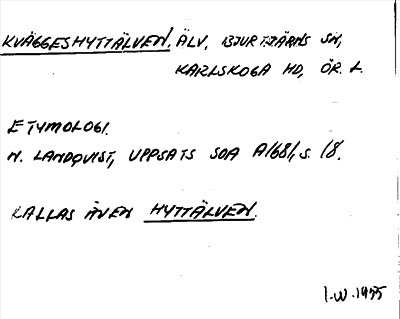 KVÄGGESHYTTÄLVEN, ÄLV, BJURTJÄRNS SN,
KARLSKOGA HD, ÖR. L.
ETYMOLOGI.
N. LANDQVIST, UPPSATS SOA A1681, S. 18.
KALLAS ÄVEN HYTTÄLVEN.
I.W. 1955